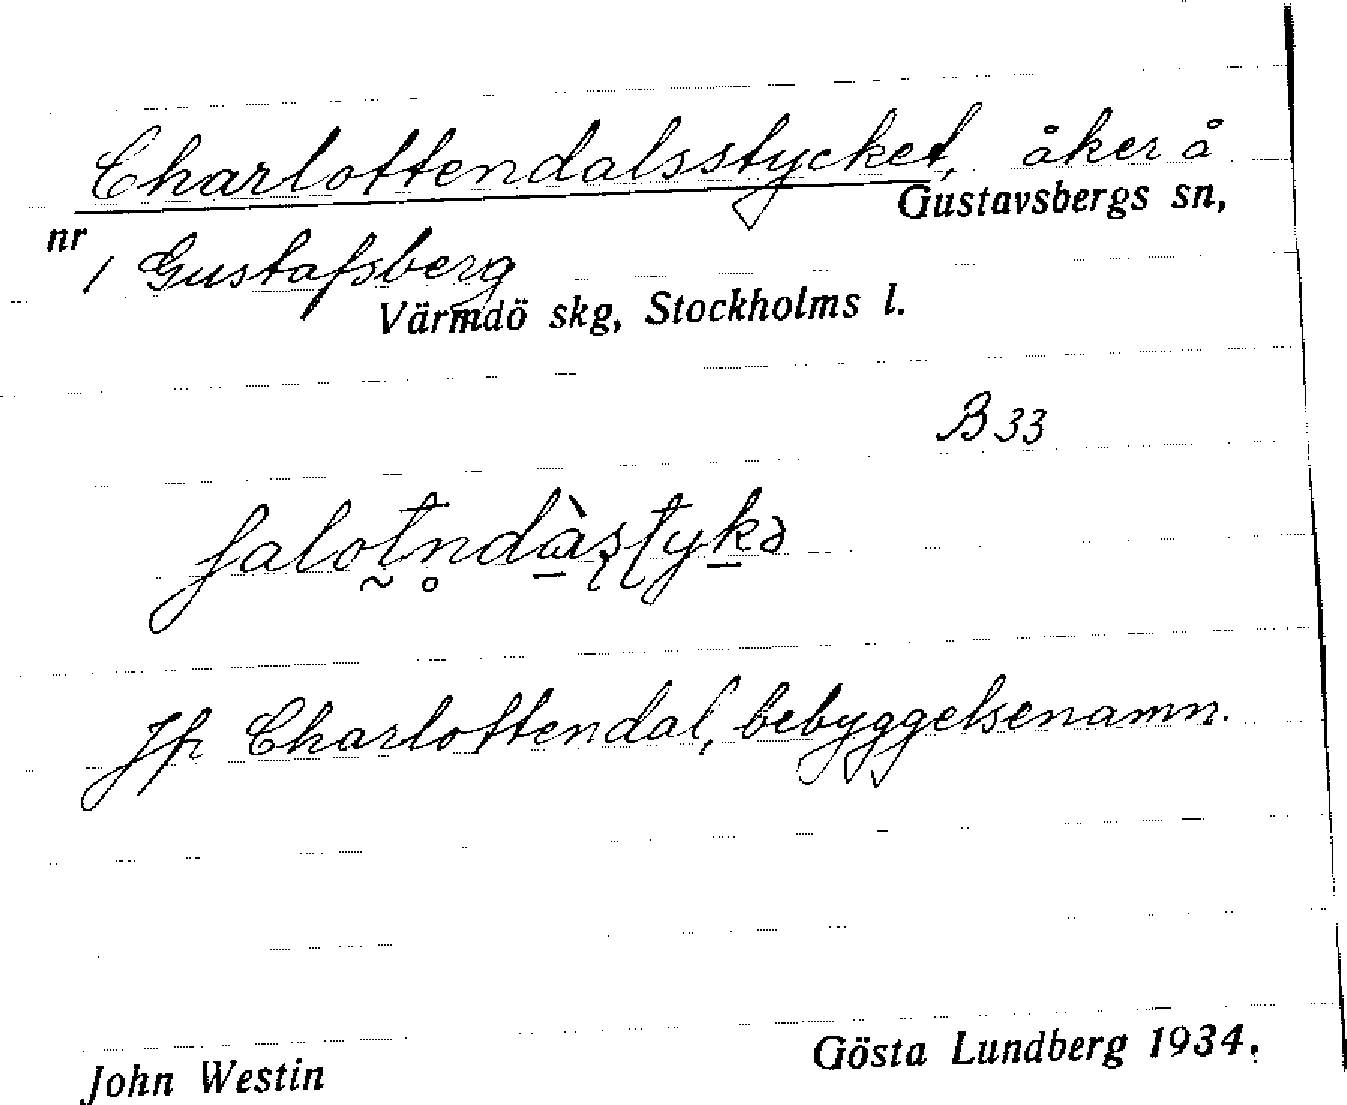 Charlottendalsstycket, åker å
Gustavsbergs sn,
nr 1 Gustafsberg
Värmdö skg, Stockholms l.
B 33
ʃalot̰n̥dà̠ʂʈyk̠ə
Jfr Charlottendal, bebyggelsenamn.
Gösta Lundberg 1934.
John Westin